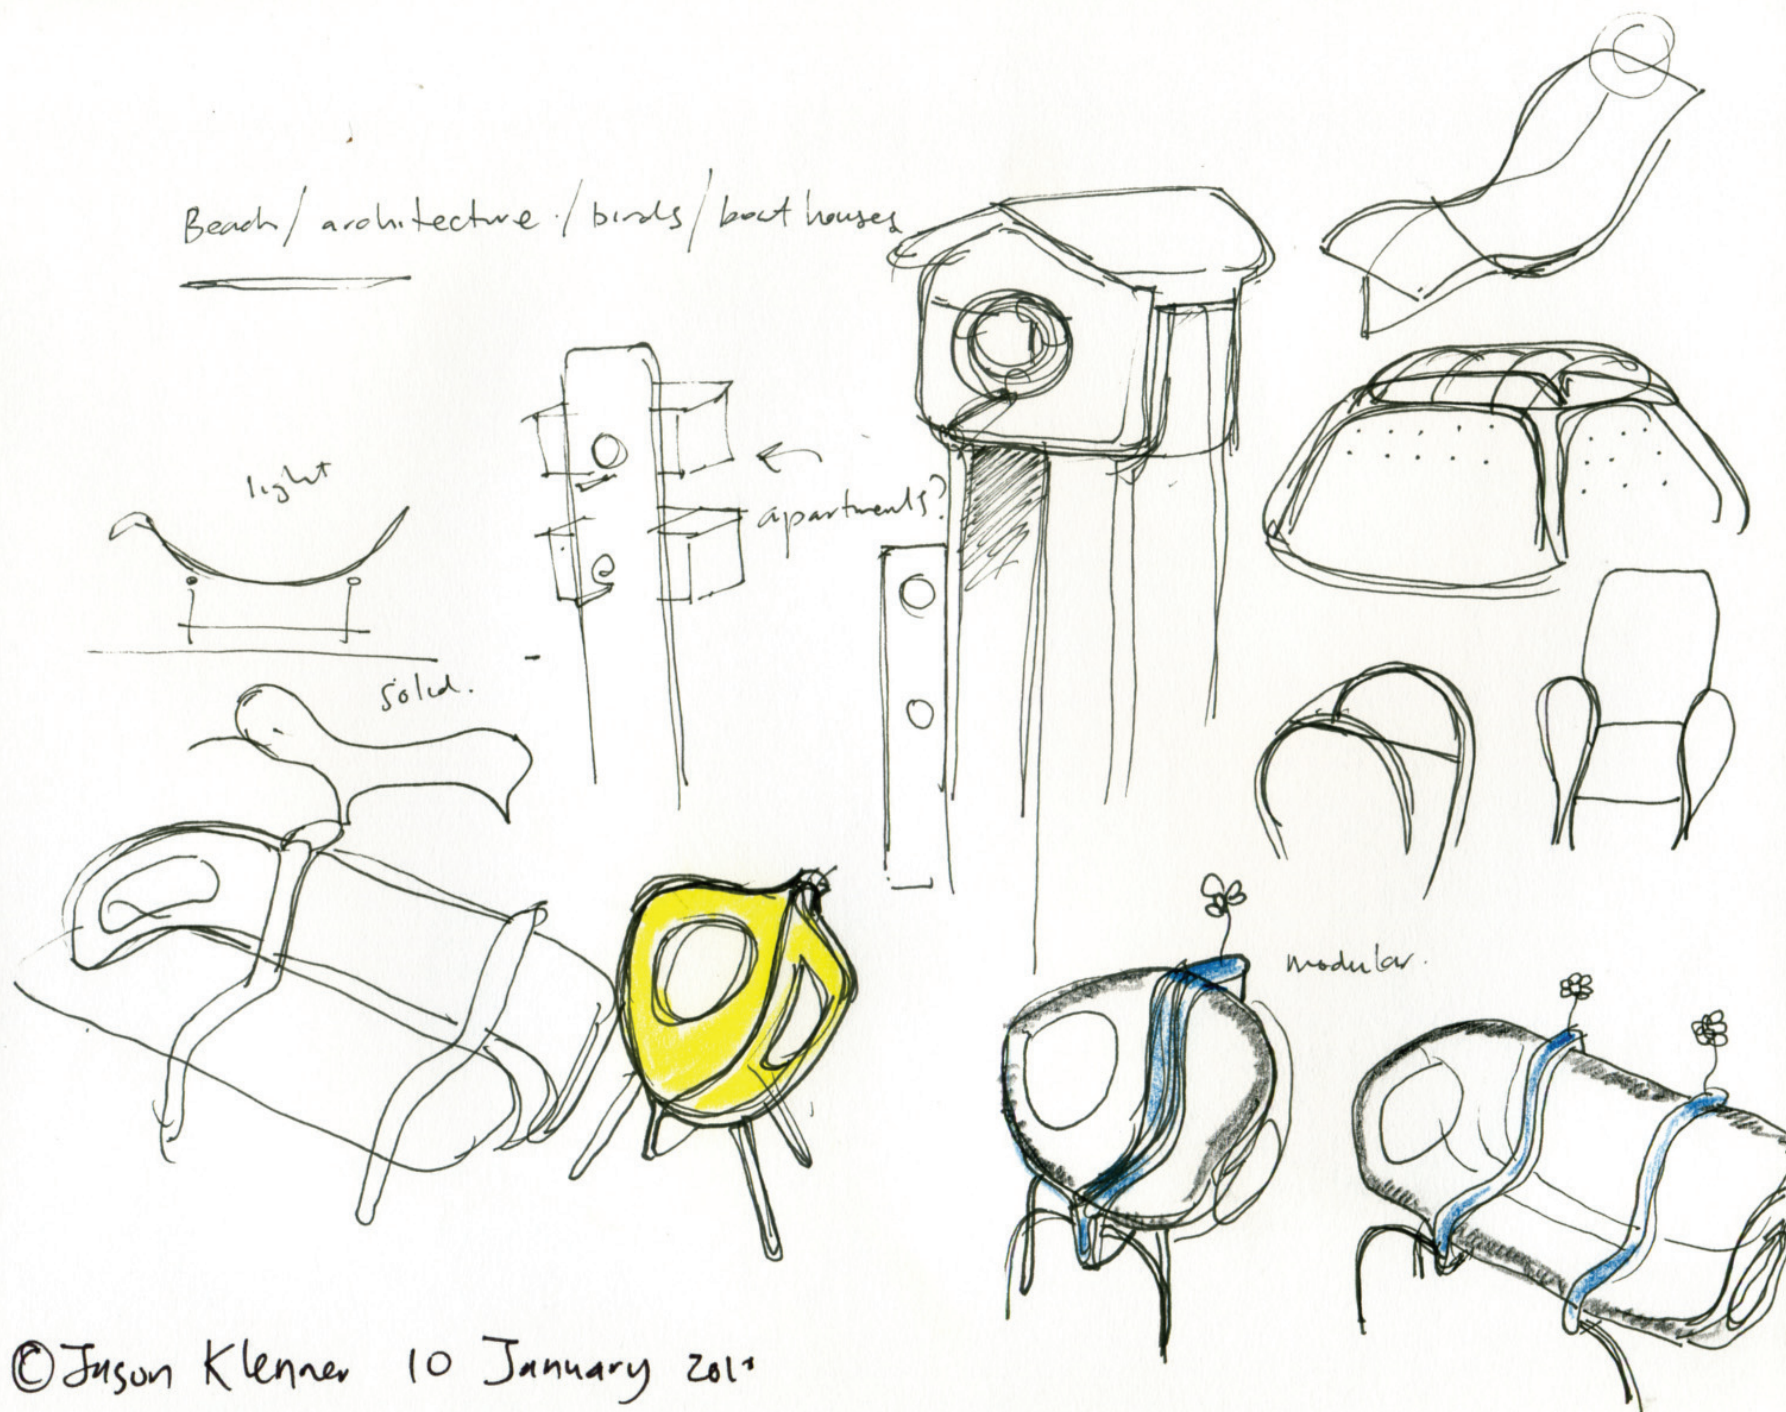 Beach / architecture / birds / boat houses
light
apartments?
solid.
modular.
© Jason Klenner 10 January